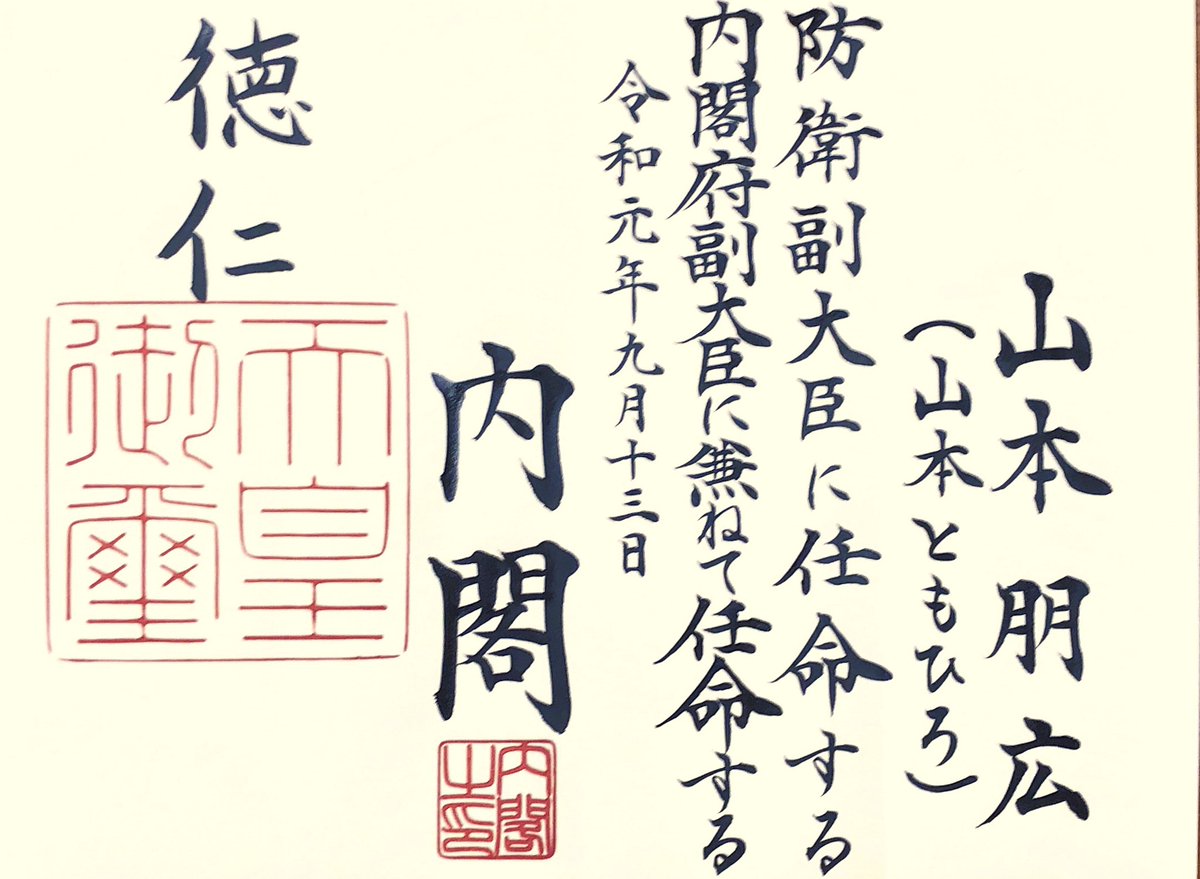 山本朋広
(山本ともひろ)
防衛副大臣に任命する
内閣府副大臣に兼ねて任命する
令和元年九月十三日
内閣
内閣之印
徳仁
天皇御璽